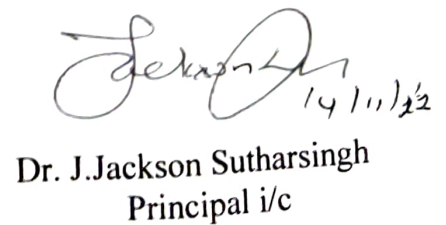 Jackson
14/11/22
Dr. J.Jackson Sutharsingh
Principal i/c